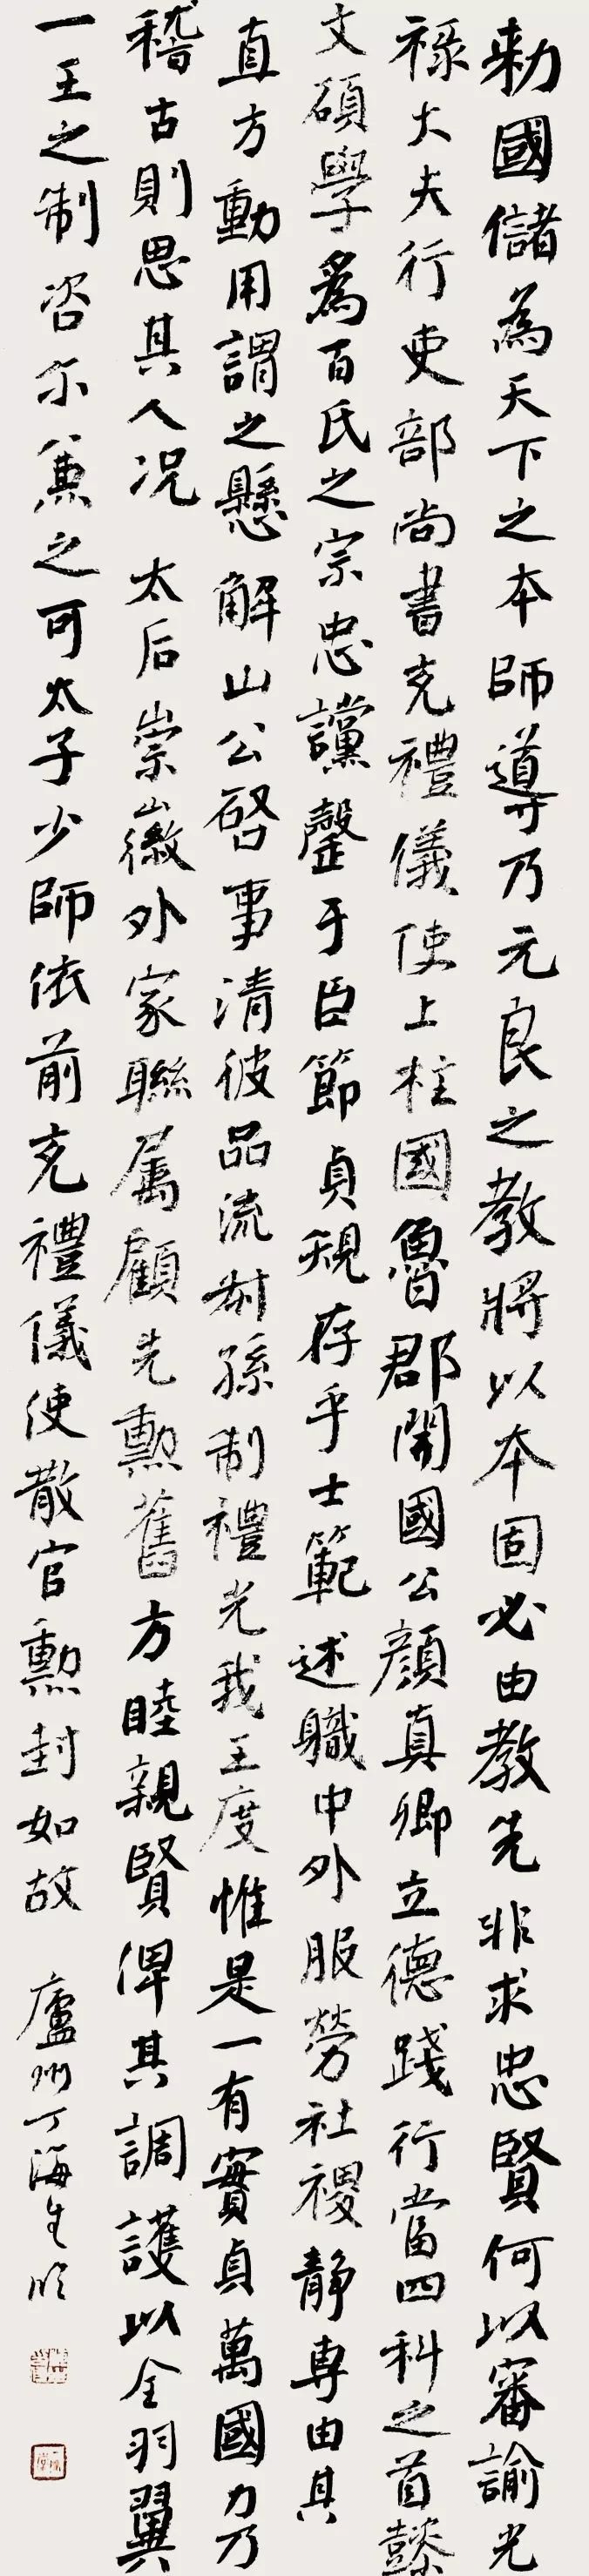 勅國儲為天下之本師導乃元良之教將以本固必由教先非求忠賢何以審諭光
祿大夫行吏部尚書充禮儀使上柱國魯郡開國公顏真卿立德踐行當四科之首懿
文碩學為百氏之宗忠讜罄于臣節貞規存乎士範述職中外服勞社稷靜專由其
直方動用謂之懸解山公啓事清彼品流叔孫制禮光我王度惟是一有實貞萬國力乃
稽古則思其人況 太后崇徽外家聯屬顧先勳舊方睦親賢俾其調護以全羽翼
一王之制咨尔兼之可太子少師依前充禮儀使散官勳封如故 廬州丁海生臨